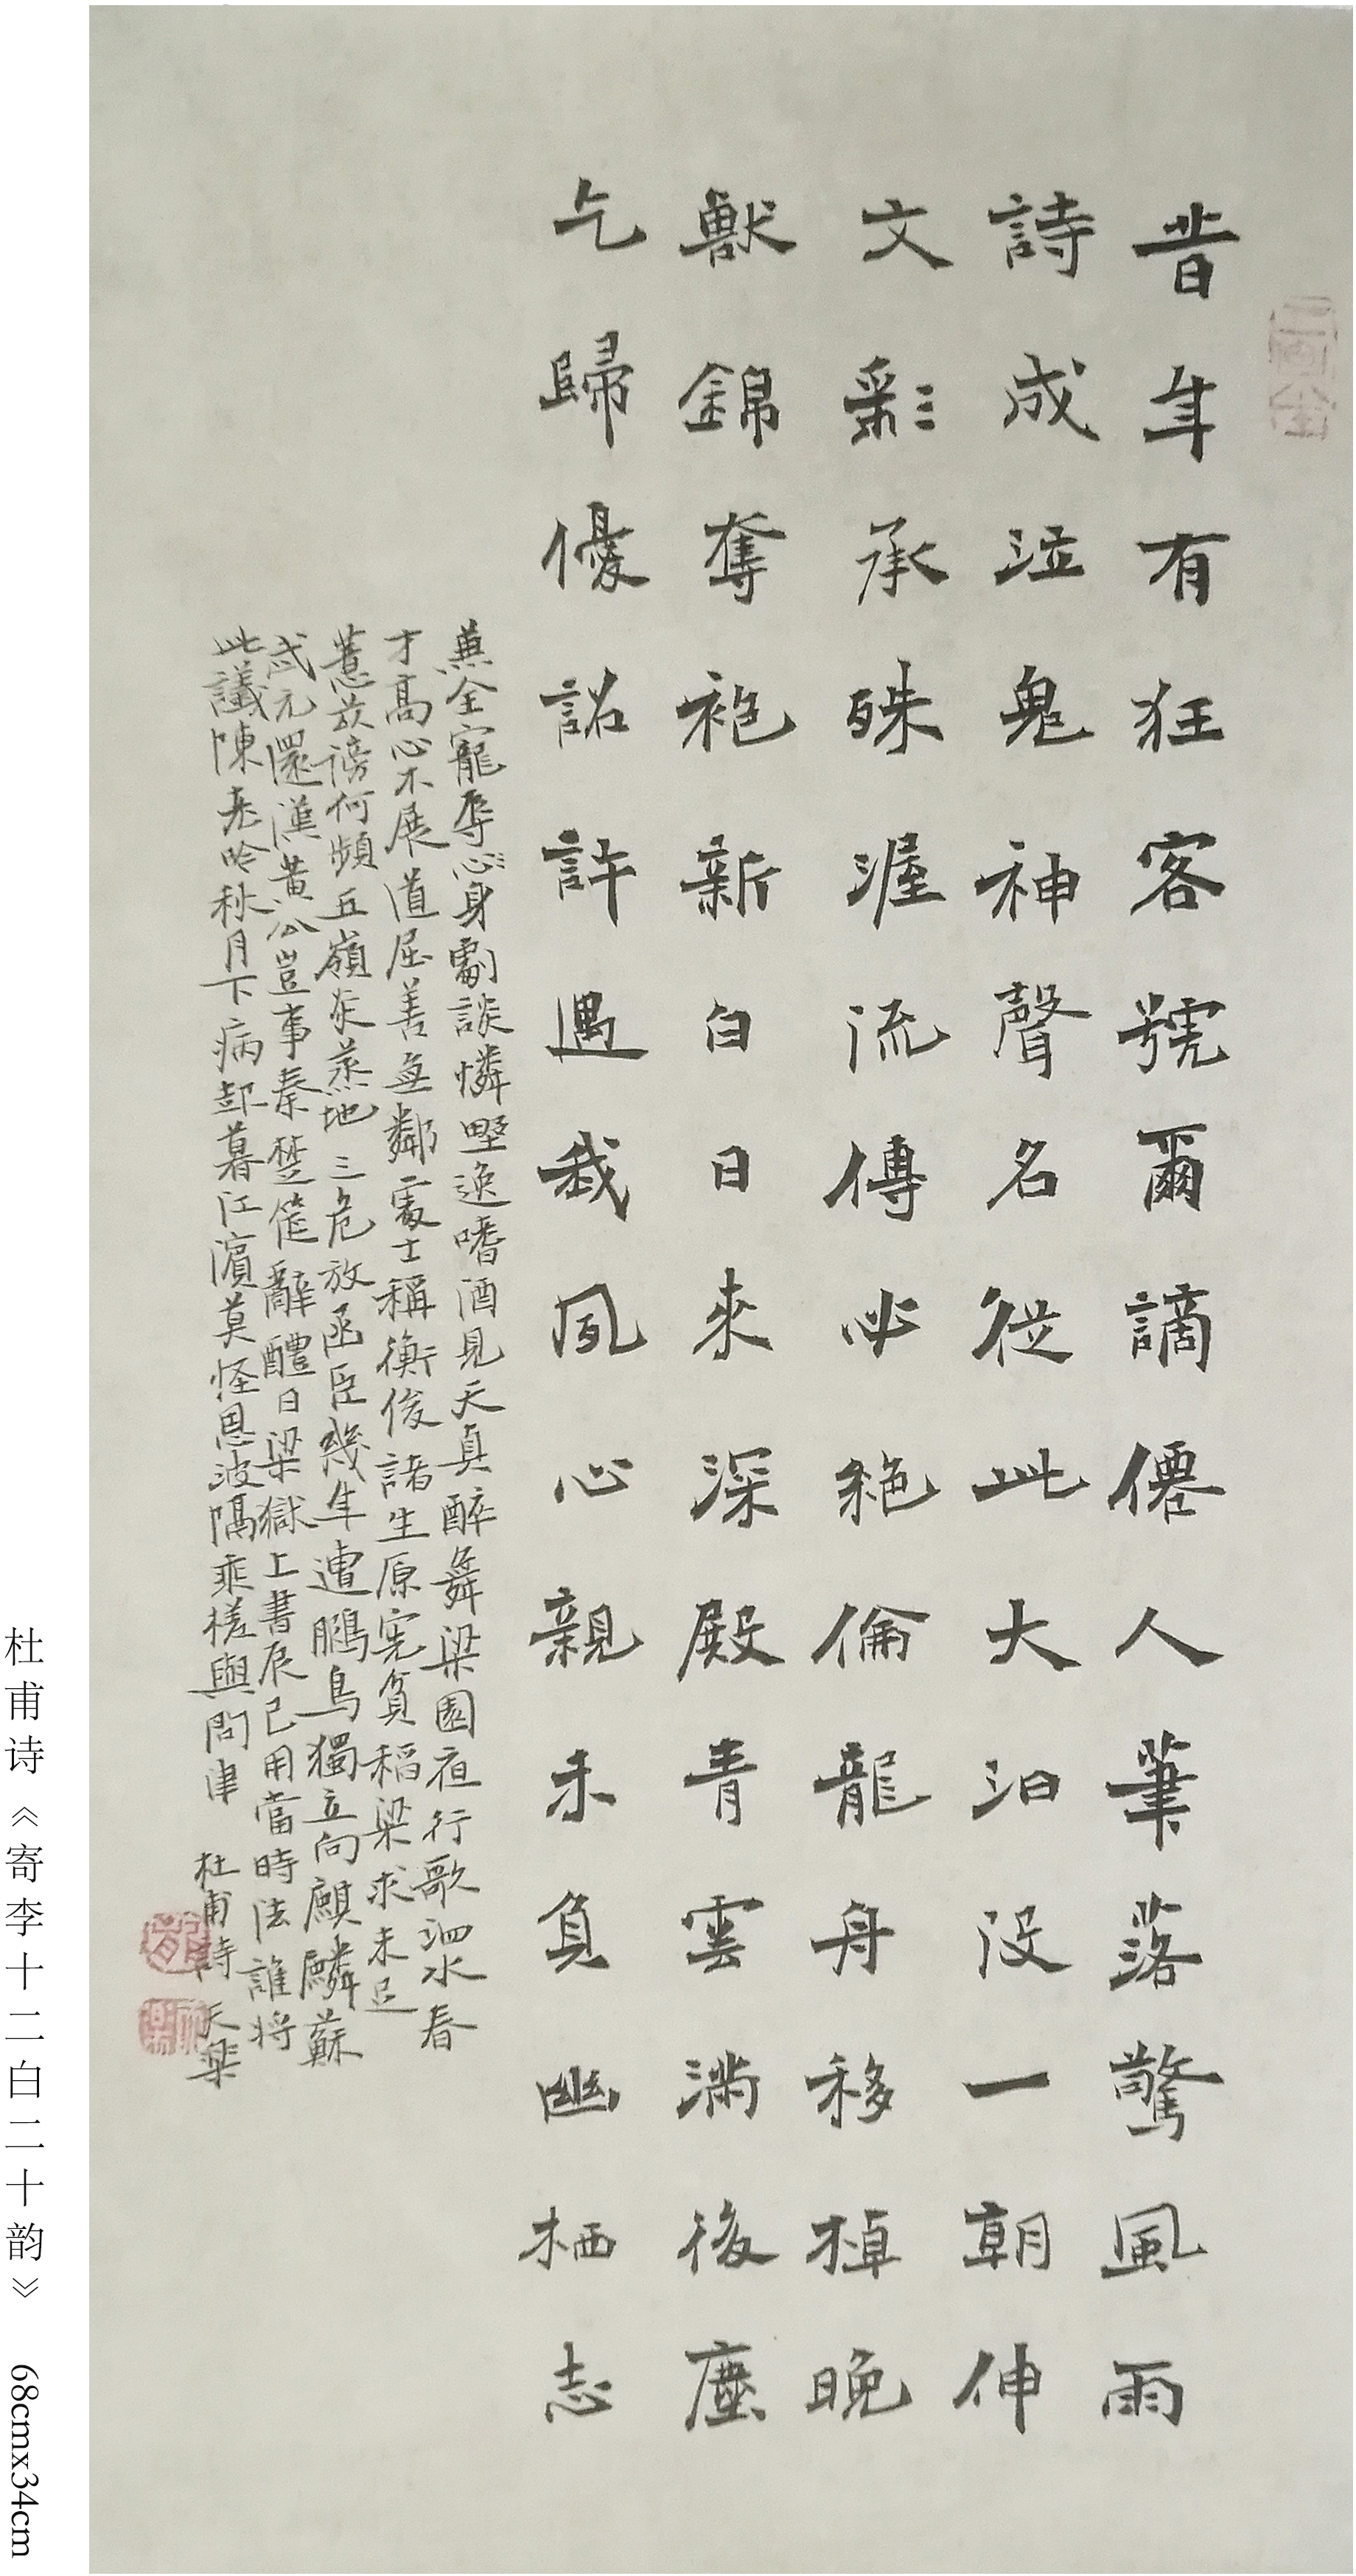 昔年有狂客號爾謫僊人筆落驚風雨
詩成泣鬼神聲名從此大汩沒一朝伸
文彩承殊渥流傳必絕倫龍舟移棹晚
獸錦奪袍新白日來深殿青雲滿後塵
乞歸優詔許遇我夙心親未負幽栖志
兼全寵辱心身劇談憐野逸嗜酒見天真醉舞梁園夜行歌泗水春
才高心不展道屈善無鄰處士稱衡俊諸生原憲貧稻梁求未足
薏苡謗何頻五嶺炎蒸地三危放逐臣幾年遭鵩鳥獨立向麒麟蘇
武元還漢黃公豈事秦楚筵辭醴日梁獄上書辰已用當時法誰將
此議陳老吟秋月下病起暮江濱莫怪恩波隔乘槎與問津 杜甫詩 天樂
杜甫诗《寄李十二白二十韵》 68cmx34cm